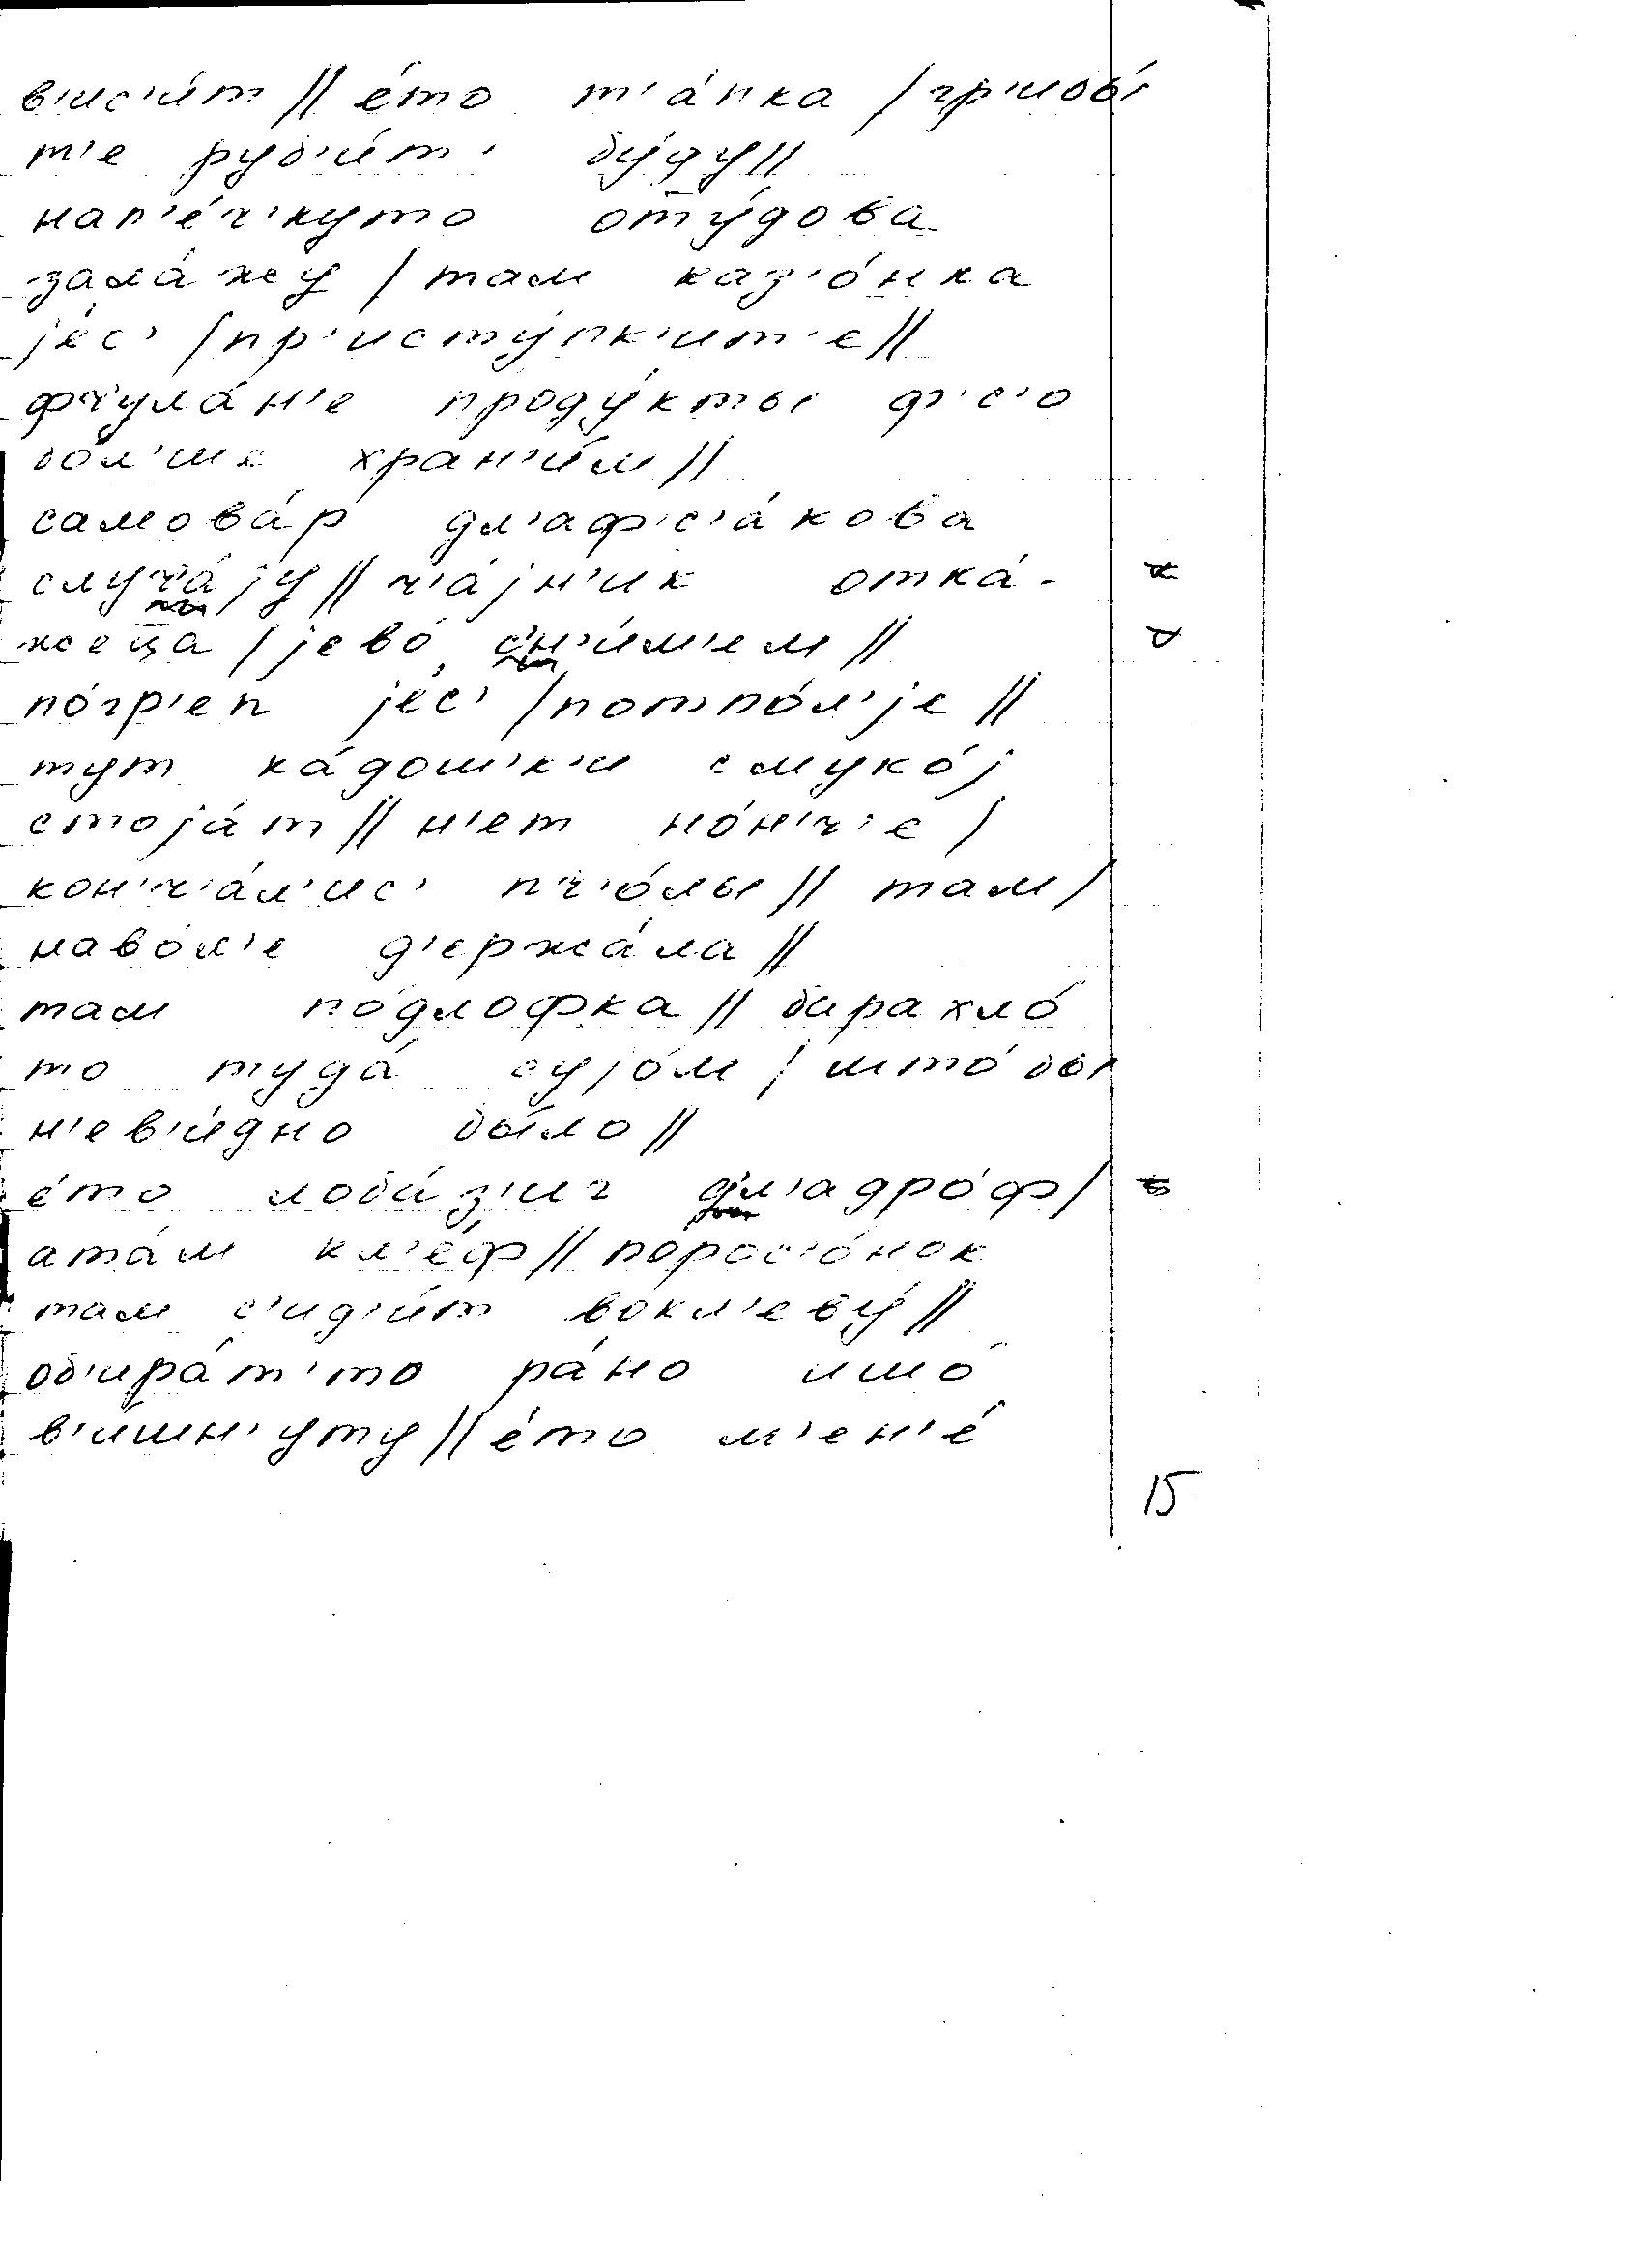 в'ис'и́т // е́то т'а́пка / гр'ибы́
т'е руб'и́т' бу́ду //
нап'е́ч'куто оту́дова
зала́жу / там каз'о́нка
jе́с' / пр'исту́пк'ит'е //
фч'ула́н'е проду́кты ф'с'о
бо́л'ше хран'и́м //
самова́р дл'аф'с'а́кова
случ'а́jу // ч'а́jн'ик отка́-
жеца / jево́ с'н'и́м'ем //
по́гр'еп jе́с' / потпо́л'jе //
тут ка́дош'к'и смуко́j
стоjа́т // н'ет но́н'ч'е /
кон'ч'а́л'ис' пч'о́лы // там /
наво́л'е д'ержа́ла //
там по́длофка // барахло́
то туда́ суjо́м / што́бы
н'ев'и́дно бы́ло //
е́то лоба́з'иг дл'адро́ф /
ата́м кл'е́ф // порос'о́нок
там с'ид'и́т вокл'еву́ //
об'ира́т'то ра́но ишо́
в'и́шн'уту // е́то м'ен'е́
15